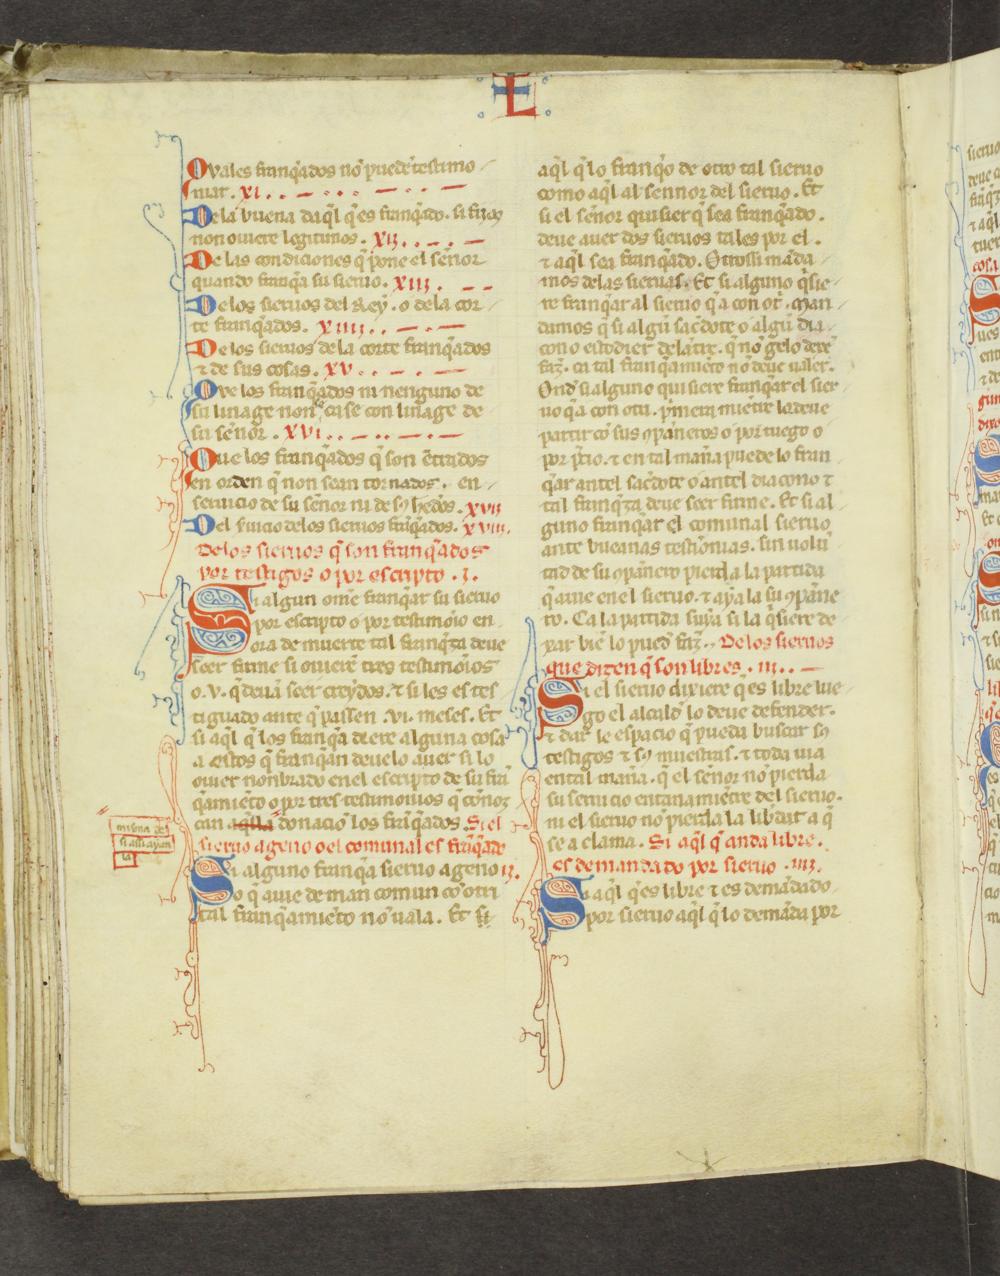 L
Quales franq̃ados no puedẽ testimo
niar. xi.
De la buena daq̃l q̃ es franq̃ado. si fijos
non ouiere legitimos. xij.
De las condiciones q̃ pone el señor
quando franq̃a su sieruo. xiij.
De los sieruos del Rey. o de la cor
te franq̃ados. xiiij.
De los sieruos de la corte franq̃ados
⁊ de sus cosas. xv.
Que los franq̃ados ni nenguno de
su linage non case con linage de
su señor. xvi.
Que los franq̃ados q̃ son ẽtrados
en orden q̃ non sean tornados. en
seruicio de su señor ni de sꝯ hedos. xvij
Del s̃uicio de los sieruos frãq̃ados. xviij.
De los sieruos q̃ son franq̃ados
por testigos o por escripto .i.
Si algun ome franq̃ar su sieruo
por escripto o por testimoio en
ora de muerte tal franq̃za deue
seer firme si ouierẽ tres testimoios
o .v. q̃ deuã seer creydos. ⁊ si les es tes
tiguado ante q̃ passen .vi. meses. Et
si aq̃l q̃ los franq̃a diere alguna cosa
a estos q̃ franq̃an deuelo auer si lo
ouier nonbrado en el escripto de su frã
q̃amiẽto o por tres testimonios q̃ conoz
can aq̃lla donaciõ los frãq̃ados. Si el
sieruo ageno o el comunal es frãq̃ado
ij.
Si alguno franq̃a sieruo ageno
o q̃ auie de man comun cõ otri
tal franq̃amiẽto nõ uala. Et si
misma de
si assi ayan
la
aq̃l q̃ lo franq̃o de otro tal sieruo
como aq̃l al sennor del sieruo. Et
si el señor quisier q̃ sea franq̃ado.
deue auer dos sieruos tales por el.
⁊ aq̃l sea franq̃ado. Otrossi mãda
mos de las sieruas. Et si alguno q̃sie
re franq̃ar al sieruo q̃ a con ot̃. man
damos q̃ si algũ sac̃dote o algũ dia
cono estodier delãtre. q̃ nõ gelo dexe
faz̃. ca tal franq̃amiẽto nõ deue ualer.
Onđ si alguno quisiere franq̃ar el sier
uo q̃ a con otri. p̃mera miẽtre lo deue
partir cõ sus cõpañeros o por ruego o
por p̃cio. ⁊ en tal mañа puede lo fran
q̃ar antel sac̃dote o antel diacono ⁊
tal franq̃za deue seer firme. Et si al
guno franq̃ar el comunal sieruo
ante buenas testimonias. sin uolũ
tad de su cõpañero pierda la partida
q̃ auie en el sieruo. ⁊ aya la su cõpañe
ro. Ca la partida suya si la q̃siere de
xar biẽ lo puedõ faz̃. De los sieruos
que dizen q̃ son libres. iij.
Si el sieruo dixiere q̃ es libre lue
go el alcalđ lo deue defender.
⁊ dar le espacio q̃ pueda buscar sꝯ
testigos ⁊ sꝯ muestras. ⁊ toda uia
en tal mañа. q̃ el señor nõ pierda
su seruicio entanamiẽtre del sieruo.
ni el sieruo nõ pierda la lib̃dat a q̃
se a clama. Si aq̃l q̃ anda libre.
es demandado por sieruo. iiij.
Si aq̃l q̃ es libre ⁊ es demãdado
por sieruo aq̃l q̃ lo demãda por